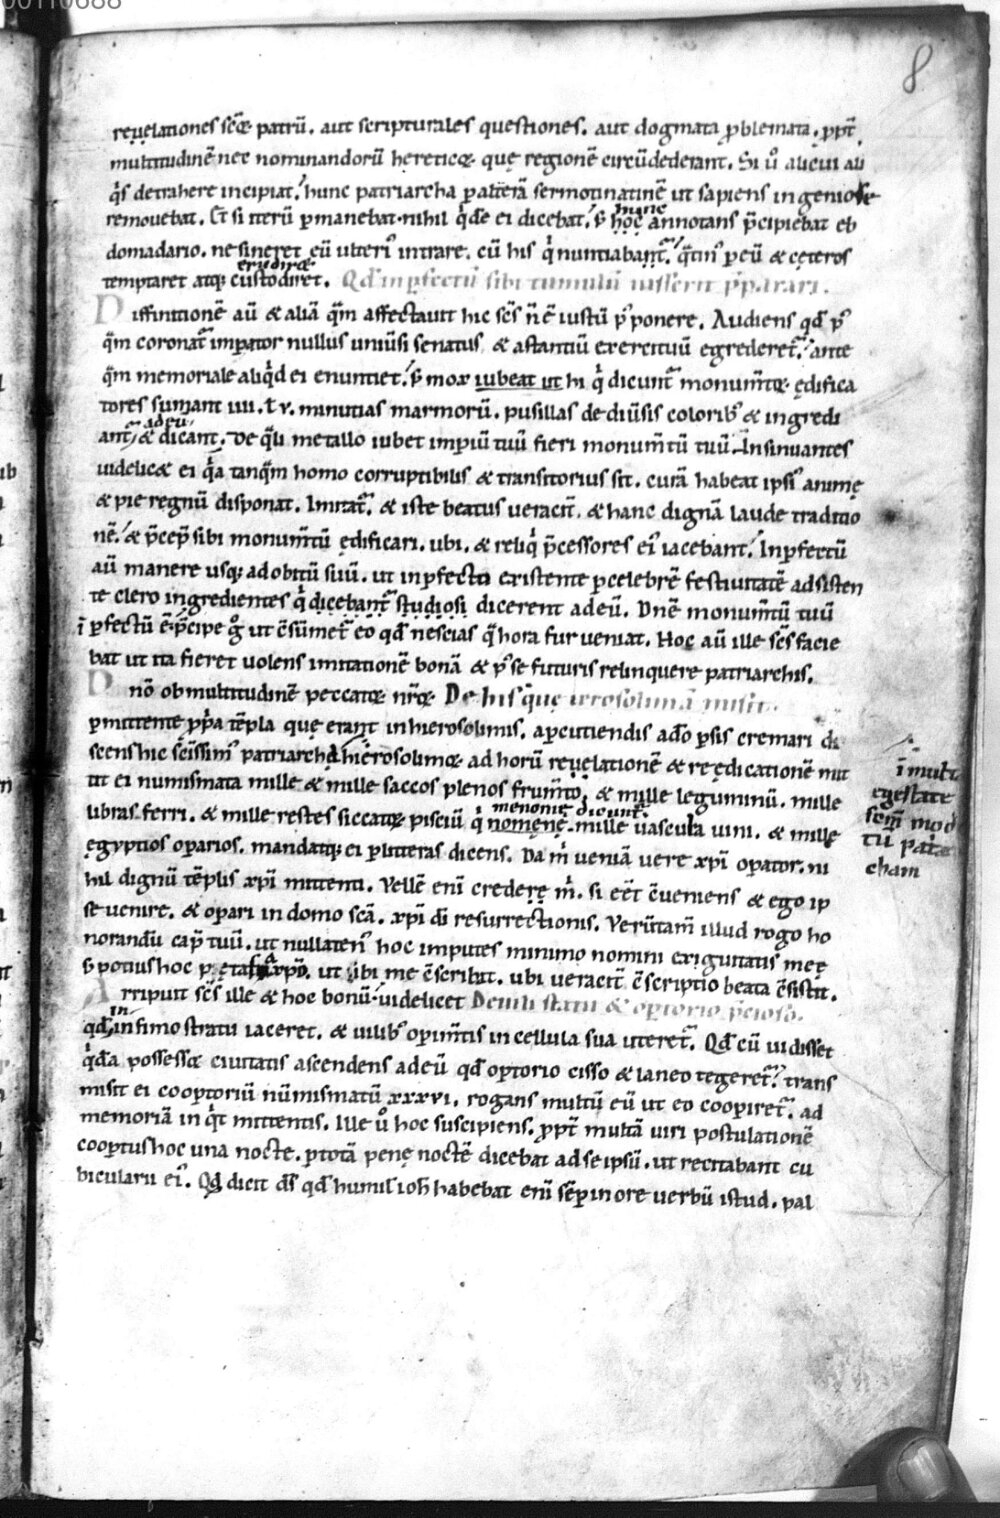 8
reuelationes scę patrū. aut scripturales questiones. aut dogmata ꝓblemata. ꝓpt̄
multitudinē nec nominandorū hereticoꝝ quę regionē circūdederant. Si ů alicui ali
qͥs detrahere incipiat. hunc patriarcha ꝑ alterā sermotinatinē ut sapiens ingeniose
remouebat. Et si iterū ꝑmanebat. nihil qͥdē ei dicebat. hunc annotans p̄cipiebat eb
domadario. ne sineret eū ulteriꝰ intrare. cū his qͥ nuntiabant. qͣtinꝰ ꝑ eū & cęteros
temptaret atq; erudire custodiret. Qđ inꝑfectū sibi tumulū iusserit p̄parari.
Diffinitionē aū & aliā qͣm affectauit hic sc̄s n̄ ē iustū p̄ponere. Audiens qđ pꝰ
qͣm coronat᷑ imꝑator nullus uniūsi senatus & astantiū exercituū egrederet᷑. ante
qͣm memoriale aliqͥd ei enuntiet. s; mox iubeat ut hi qͥ dicunt᷑ monum̄toꝝ ędifica
tores sumant iiii. ł v. minutias marmorū. pusillas de diūsis coloribꝰ & ingredi
ant᷑ ad eū & dicant. De qͣli metallo iubet imꝑiū tuū fieri monum̄tū tuū. Insinuantes
uidelicet ei qͥa tanqͣm homo corruptibilis & transitorius sit. curā habeat ipsiꝰ animę
& pie regnū disponat. Imitat᷑ & iste beatus ueracit̄. & hanc dignā laude traditio
nē. & p̄cepͥ sibi monum̄tū ędificari. ubi. & reliqͥ p̄cessores eiꝰ iacebant. Inꝑfectū
aū manere usq; ad obitū suū. ut inꝑfecto existente ꝑ celebrē festiuitatē adsisten
te clero ingredientes qͥ dicebant᷑ studiosi dicerent ad eū. Dn̄e monum̄tū tuū
ī ꝑfectū ē. p̄cipe gͦ ut c̄sūmet᷑ eo qđ nescias qͣ hora fur ueniat. Hoc aū ille sc̄s facie
bat ut ita fieret uolens imitationē bonā & pꝰ se futuris relinquere patriarchis.
Dn̄o ob multitudinē peccatoꝝ nr̄oꝝ De his quę ierosolimā misit.
ꝑmittente ꝓpͥa tēpla quę erant in hierosolimis. a ꝑcutiendis a dō ꝑsis cremari di
scens hic sc̄issimꝰ patriarcha hierosolimoꝝ ad horū reuelationē & reędicationē mit
tit ei numismata mille & mille saccos plenos frum̄to. & mille leguminū. mille
libras ferri. & mille restes siccatoꝝ pisciū qͥ menomię dicunt᷑ nomenę. mille uascula uini. & mille
ęgyptios oꝑarios. mandatiq; ei ꝑ litteras dicens. Da m̄ ueniā uere xp̄i oꝑator. ni
hil dignū tēplis xp̄i mittenti. Vellē enī credere m̄. si eēt c̄ueniens & ego ip
se uenire. & oꝑari in domo scā. xp̄i dī resurrectionis. Verūtam̄ illud rogo ho
norandū capͭ tuū. ut nullatenꝰ hoc imputes minimo nomini exiguitatis meę
s; potius hoc xp̄o. ut ibi me c̄scribat. ubi ueracit̄ c̄scriptio beata c̄sistit.
Arripuit sc̄s ille & hoc bonū. uidelicet De uili statu & oꝑtorio p̄cioso.
qđ in infimo stratu iaceret. & uilibꝰ oꝑim̄tis in cellula sua uteret᷑. Qđ cū uidisset
qͥdā possessoꝝ ciuitatis ascendens ad eū qđ oꝑtorio cisso & laneo tegeret᷑. trans
misit ei cooꝑtoriū nūmismatū xxxvi. rogans multū eū ut eo cooꝑiret᷑. ad
memoriā inqͥt mittentis. Ille ů hoc suscipiens. ꝓpt̄ multā uiri postulationē
cooꝑtus hoc una nocte. ꝑ totā penę noctē dicebat ad se ipsū. ut recitabant cu
bicularii eiꝰ. Qͥd dicit qđ humilͥ ioħ habebat enī semꝑ in ore uerbū istud. pal
ī multa
egestate
tū patͥar
cham